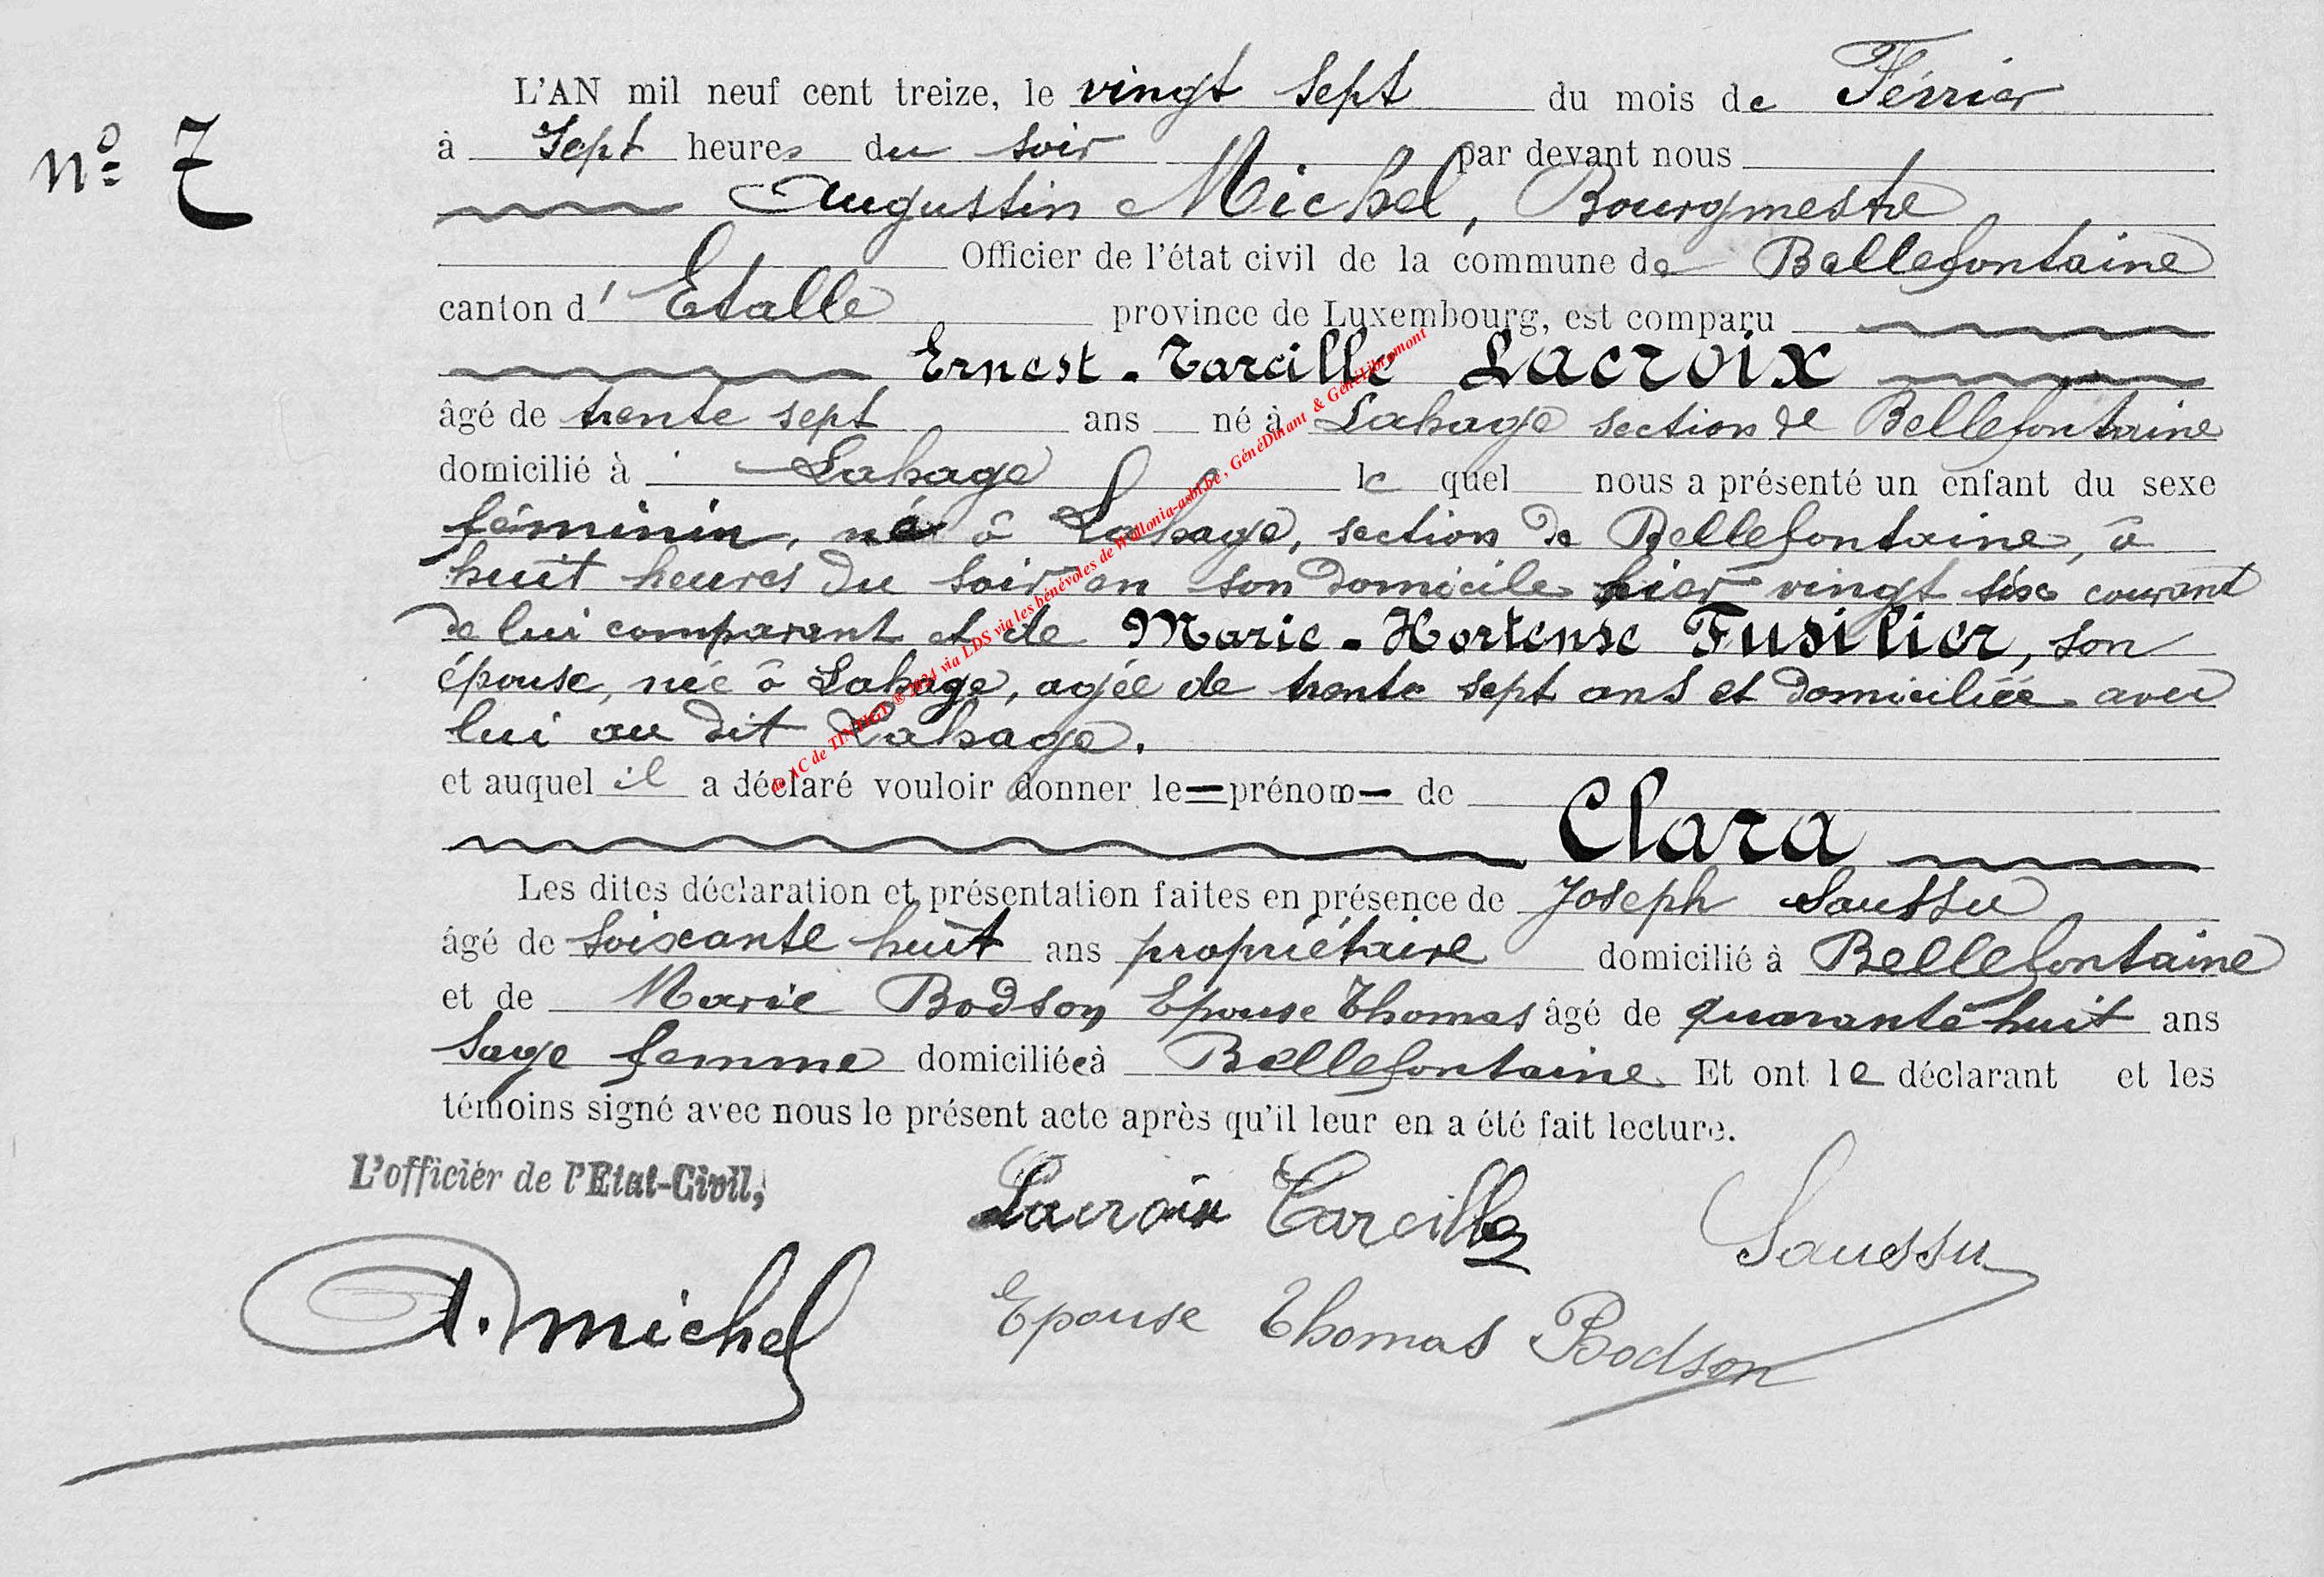 L'AN mil neuf cent treize, le vingt sept du mois de Février
n° 7
à sept heures du soir par devant nous
Augustin Michel, Bourgmestre
Officier de l'état civil de la commune de Bellefontaine
canton d' Etalle province de Luxembourg, est comparu
Ernest-Tarcille Lacroix
âgé de trente sept ans né à Lahage section de Bellefontaine
domicilié à Lahage le quel nous a présenté un enfant du sexe
féminin, né à Lahage, section de Bellefontaine, à
huit heures du soir en son domicile hier vingt six courant
de lui comparant et de Marie-Hortense Fusilier, son
épouse, née à Lahage, agée de trente sept ans et domiciliée avec
lui au dit Lahage.
et auquel il a déclaré vouloir donner le prénom de
Clara
Les dites déclaration et présentation faites en présence de Joseph Saussu
âgé de soixante huit ans propriétaire domicilié à Bellefontaine
et de Marie Bodson Epouse Thomas âgé de quarante huit ans
sage femme domiciliée à Bellefontaine Et ont le déclarant et les
témoins signé avec nous le présent acte après qu'il leur en a été fait lecture.
L'officier de l'Etat-Civil,
Lacroix Tarcille
Saussu
A. Michel
Epouse Thomas Bodson
de AC de TINTIGY ® 2024 via LDS via les bénévoles de Wallonia-asbl.be, GénéDinant & GénéLibramont